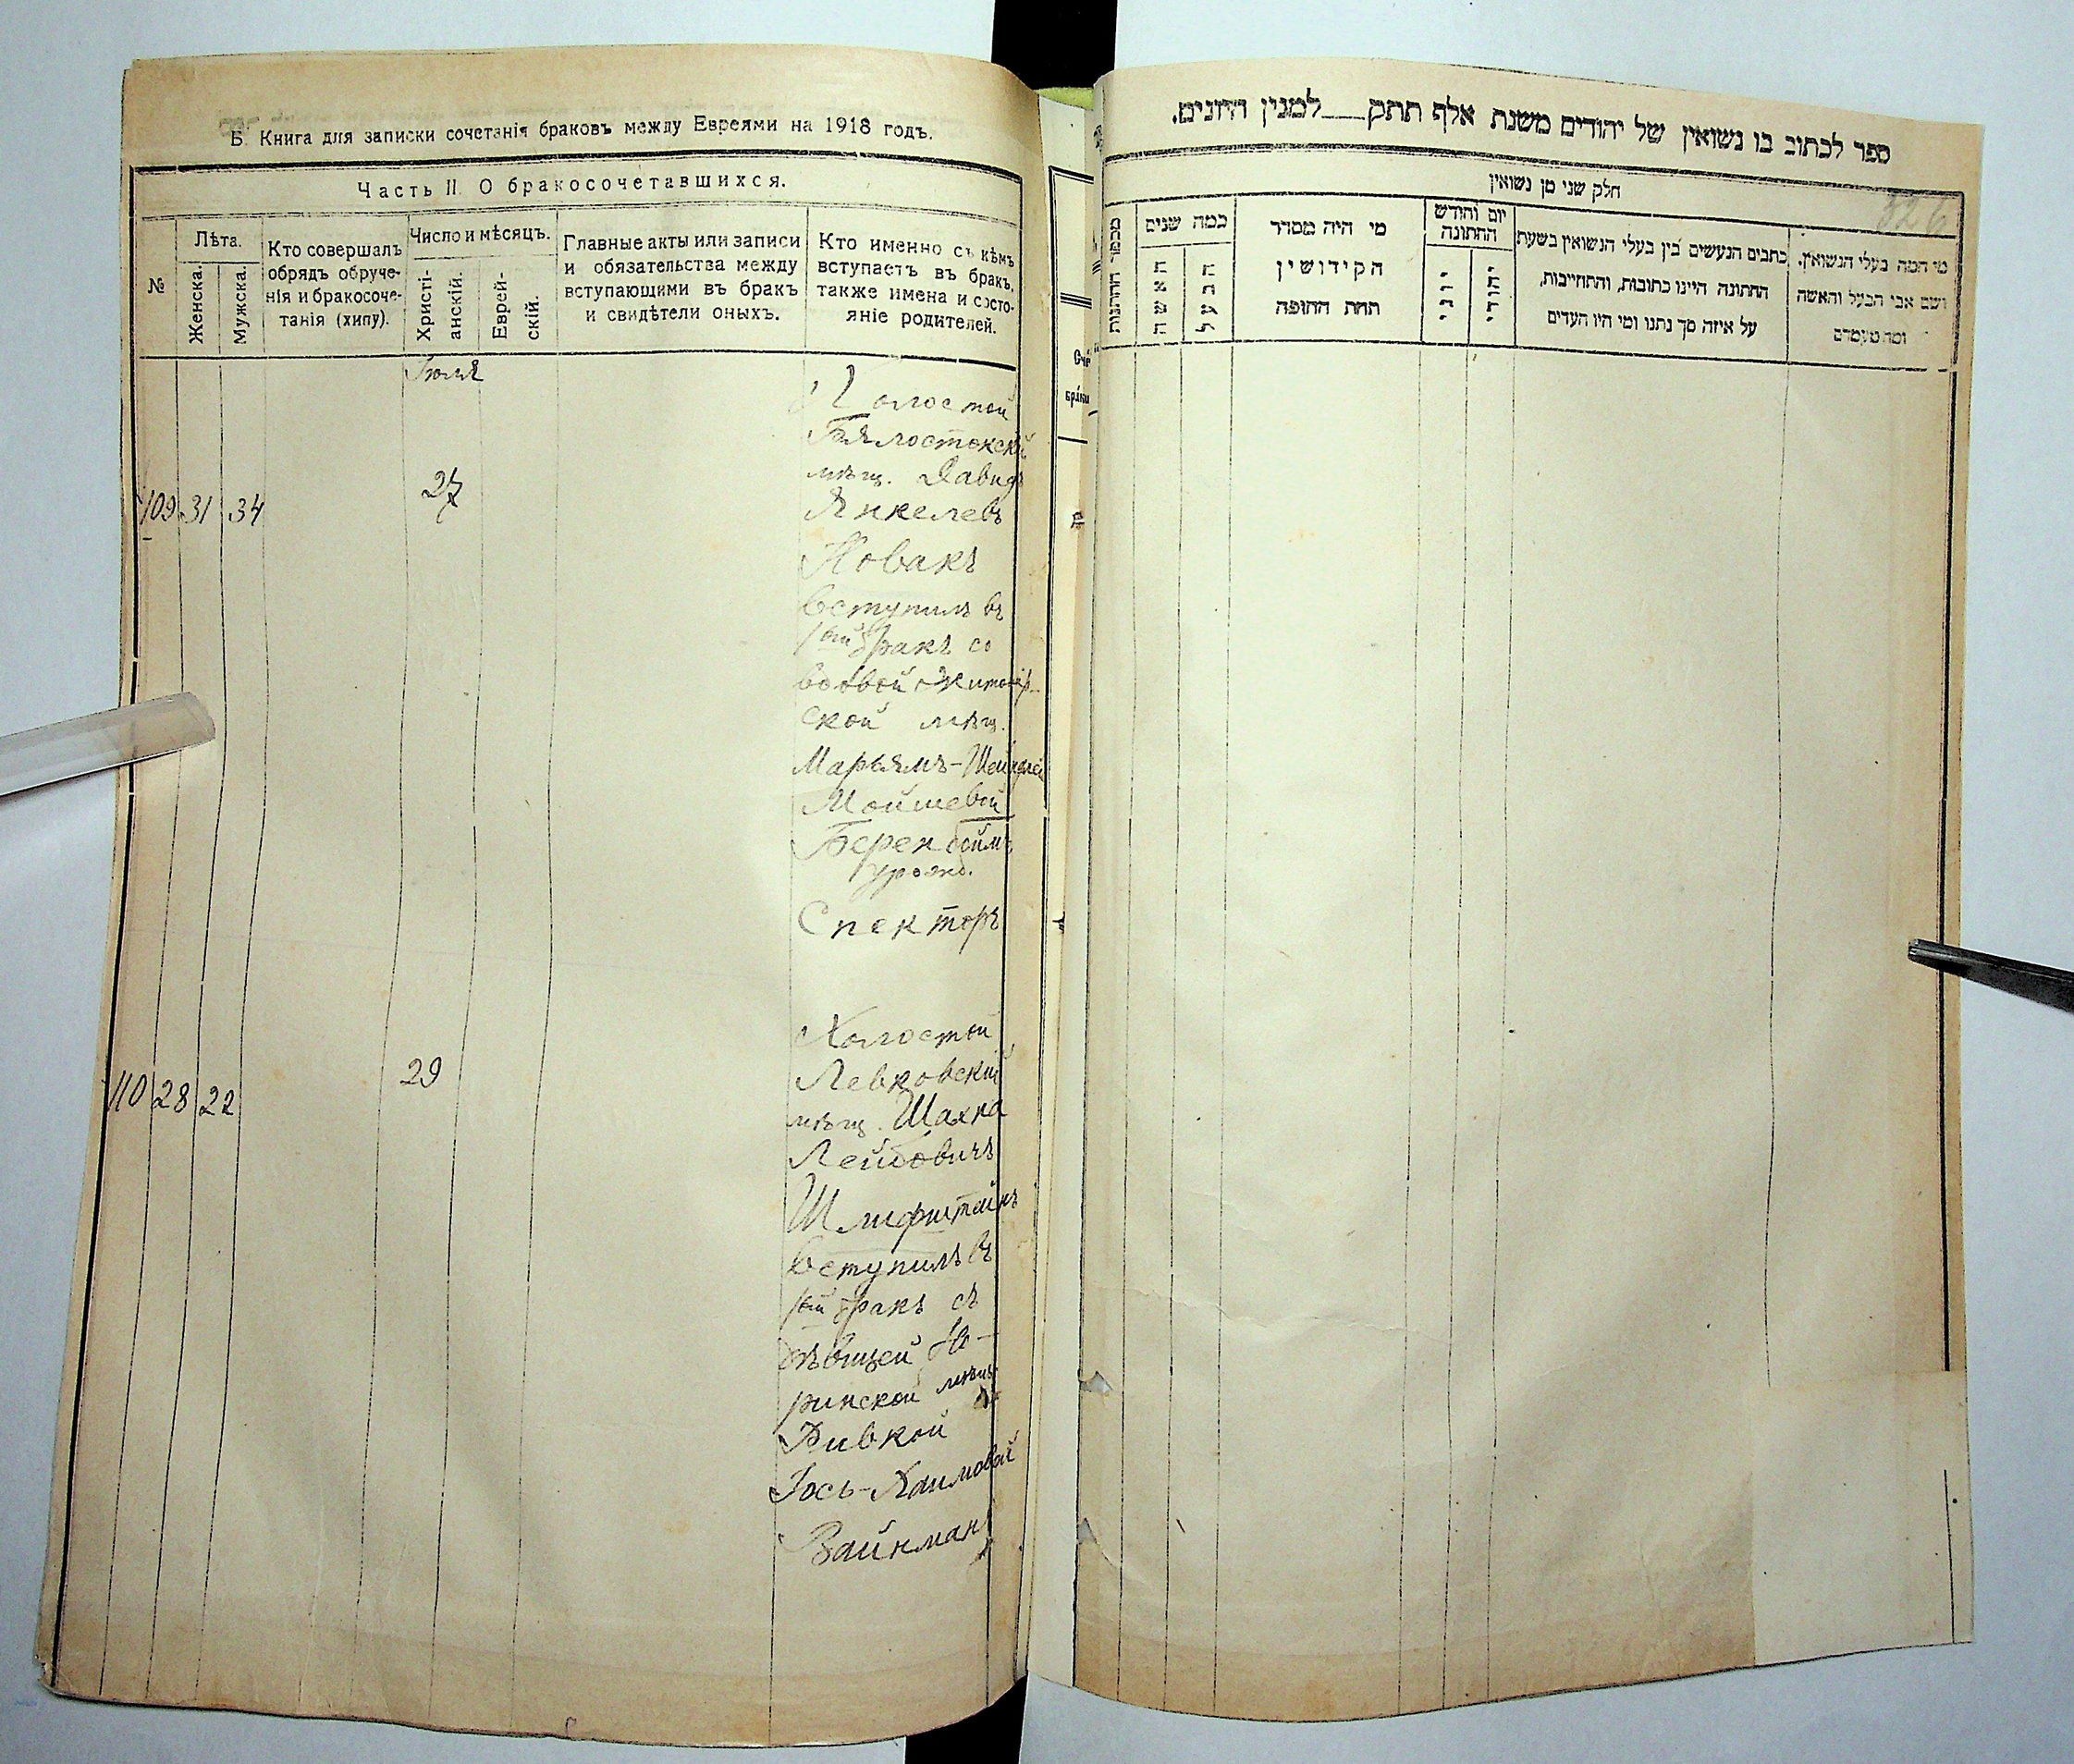 Б. Книга для записки сочетанія браковъ между Евреями на 1918 годъ.
Часть II. О бракосочетавшихся.
№
Лѣта.
Женска.
Мужска.
Кто совершалъ
обрядъ обруче-
нія и бракосоче-
танія (хипу).
Число и мѣсяцъ.
Христі-
анскій.
Еврей-
скій.
Главные акты или записи
и обязательства между
вступающими въ бракъ
и свидѣтели оныхъ.
Кто именно съ кѣмъ
вступаетъ въ бракъ,
также имена и состо-
яніе родителей.
Іюля
109 31 34
27
Холостой
Бялостокскій
мѣщ. Давидъ
Янкелевъ
Новакъ
вступилъ въ
1ый бракъ со
вдовой Житомір-
ской мѣщ.
Марьямъ-Шейндлей
Мойшевой
Беренбоймъ
урожд.
Спекторъ
110 28 22
29
Холостой
Левковскій
мѣщ. Шахна
Лейбовичъ
Шлифштейнъ
вступилъ въ
1ый бракъ съ
дѣвицей Но-
ринской мѣщ.
Ривкой
Іось-Хаимовой
Вайнманъ
ספר לכתוב בו נשואין של יהודים משנת אלף תתק___למנין היונים.
חלק שני מן נשואין
326
מספר החתונות
כמה שנים
האשה
הבעל
מי היה מסדר
הקידושין
תחת החופה
יום וחודש
החתונה
יוני
יהודי
כתבים הנעשים בין בעלי הנשואין בשעת
החתונה היינו כתובות, והתחייבות,
על איזה סך נתנו ומי היו העדים
מי המה בעלי הנשואין.
ושם אבי הבעל והאשה
ומה מעמדם